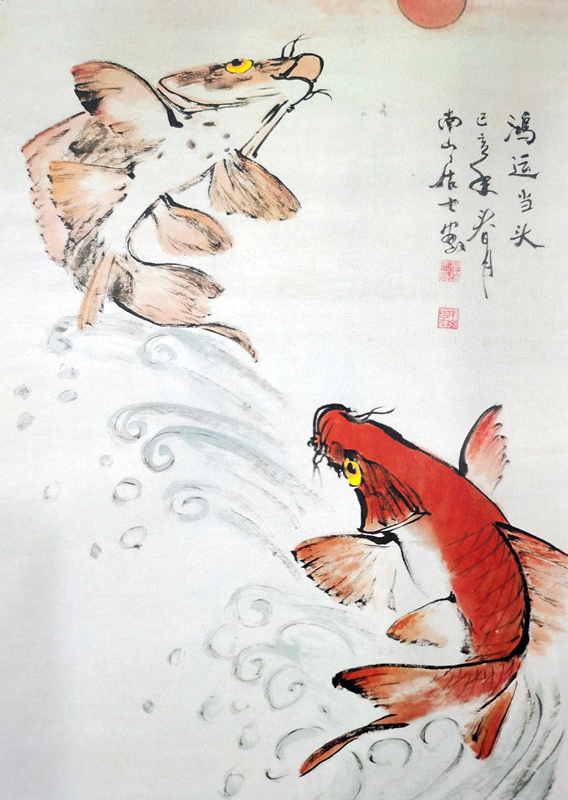 鸿运当头
己亥年春月
南山居士